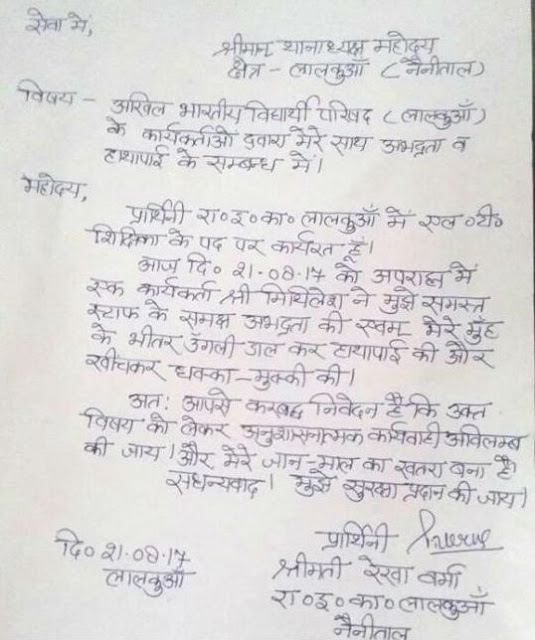 सेवा में,
श्रीमान थानाध्यक्ष महोदय
क्षेत्र - लालकुआँ (नैनीताल)
विषय - अखिल भारतीय विद्यार्थी परिषद (लालकुआँ)
के कार्यकर्ताओं द्वारा मेरे साथ अभद्रता व
हाथापाई के सम्बन्ध में।
महोदय,
प्रार्थिनी रा०इ०का० लालकुआँ में एल०टी०
शिक्षिका के पद पर कार्यरत हूँ।
आज दि० २१-०८-१७ को अपराह्न में
एक कार्यकर्ता श्री मिथिलेश ने मुझे समस्त
स्टाफ के समक्ष अभद्रता की एवम् मेरे मुँह
के भीतर उँगली डाल कर हाथापाई की और
खींचकर धक्का-मुक्की की।
अत: आपसे करबद्ध निवेदन है कि उक्त
विषय को लेकर अनुशासनात्मक कार्यवाही अविलम्ब
की जाय। और मेरे जान-माल का खतरा बना है।
सधन्यवाद। मुझे सुरक्षा प्रदान की जाय।
प्रार्थिनी
दि० २१-०८-१७
श्रीमती रेखा वर्मा
लालकुआँ
रा०इ०का० लालकुआँ
नैनीताल